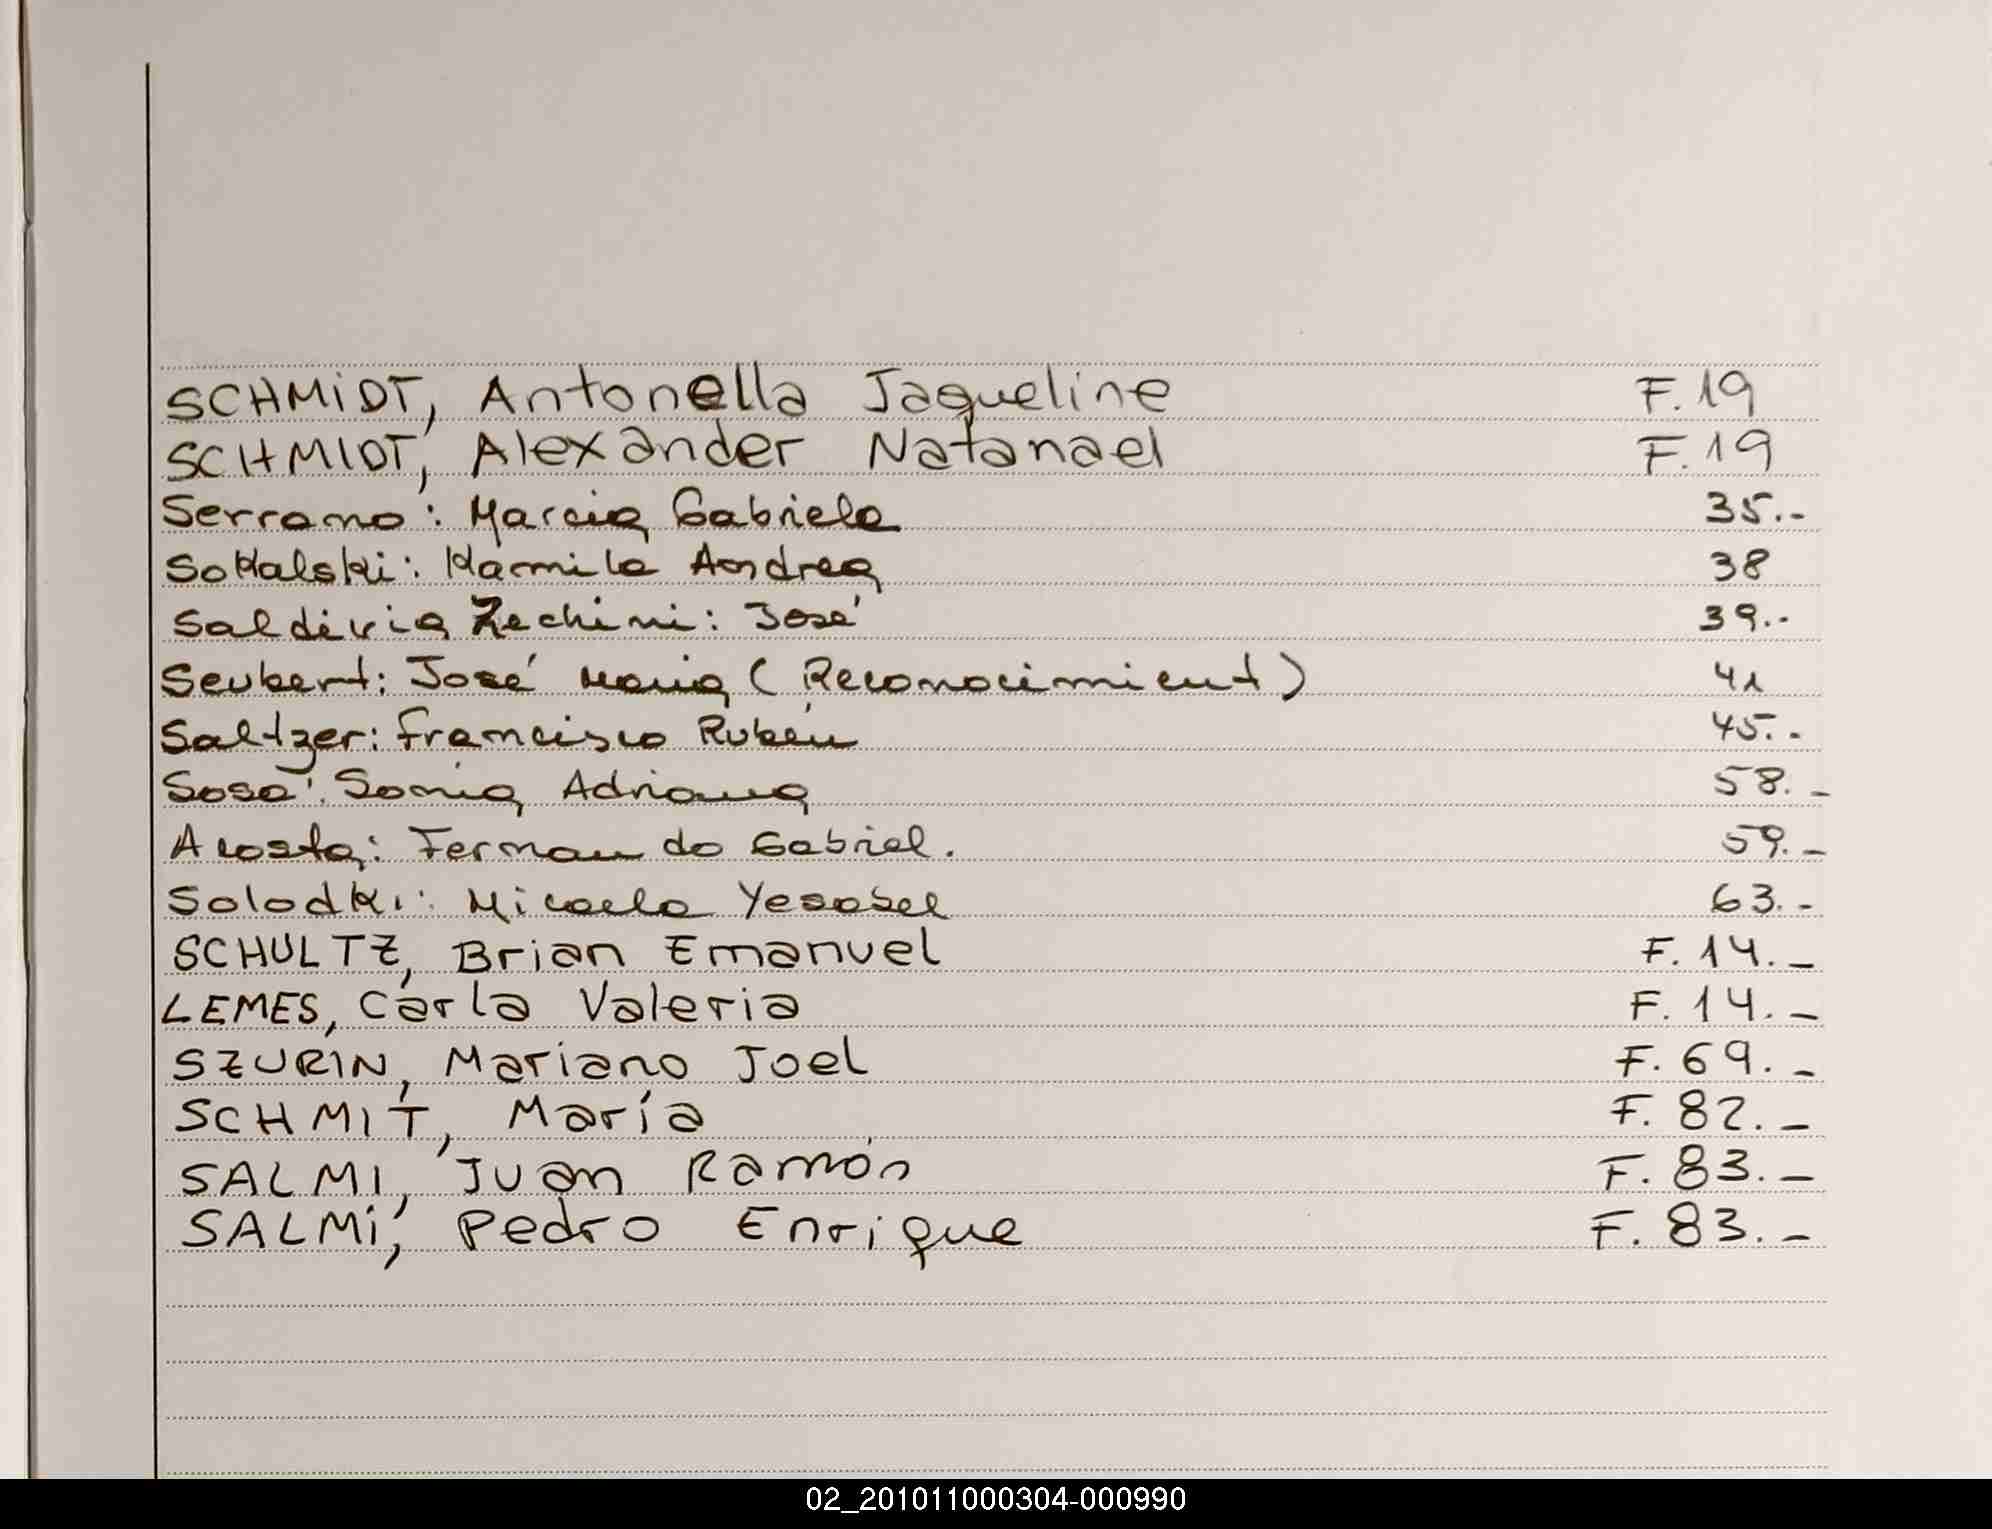 SCHMIDT, Antonella Jaqueline F.19
SCHMIDT, Alexander Natanael F.19
Serrano: Marcia Gabriela 35.-
Sokalski: Kamila Andrea 38
Saldivia Zechini: José 39.-
Seubert: José Maria (Reconocimient) 41
Saltzer: Francisco Rubén 45.-
Sosa: Sonia Adriana 58.-
Acosta: Fernando Gabriel. 59.-
Solodki: Micaela Yesabel 63.-
SCHULTZ, Brian Emanuel F. 14.-
LEMES, Carla Valeria F. 14.-
SZURIN, Mariano Joel F. 69.-
SCHMIT, María F. 82.-
SALMI, Juan Ramón F. 83.-
SALMI, Pedro Enrique F. 83.-
02_201011000304-000990